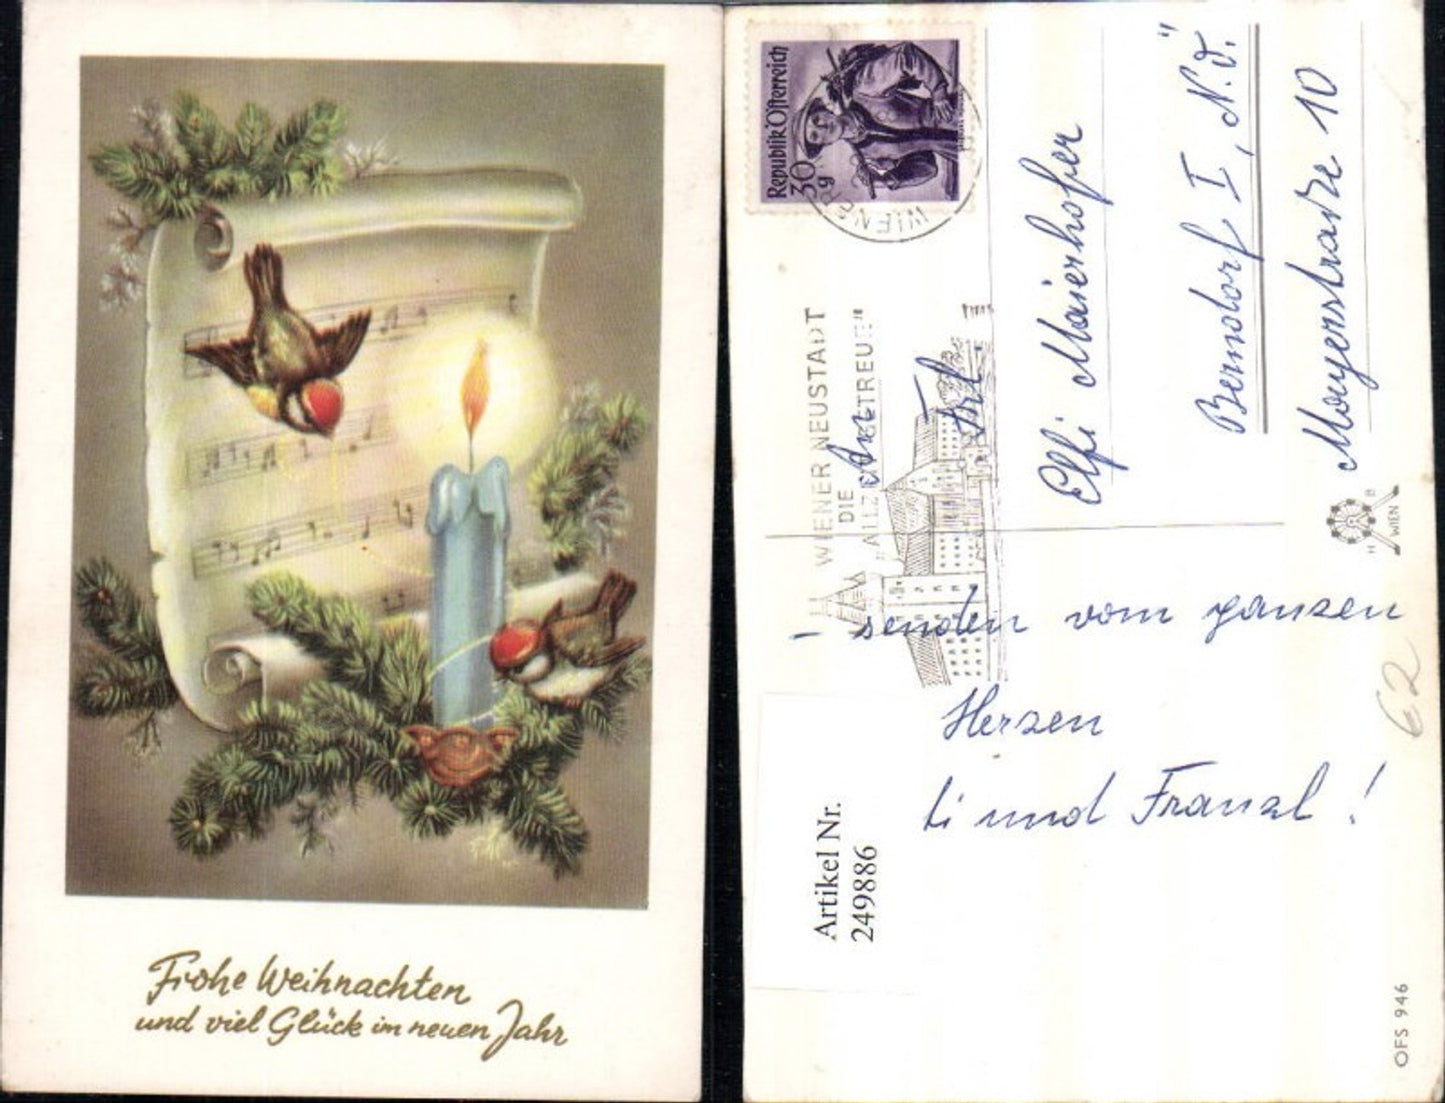 Frohe Weihnachten
und viel Glück im neuen Jahr
Republik Österreich
30 g
WIENER
WIENER NEUSTADT
DIE
"ALLZEIT GETREUE"
An
Frl.
Elfi Maierhofer
Berndorf I, N.Ö."
Moyerstraße 10
H B
WIEN
– senden vom ganzen
Herzen
Li und Franzl!
62
Artikel Nr.
249886
OFS 946